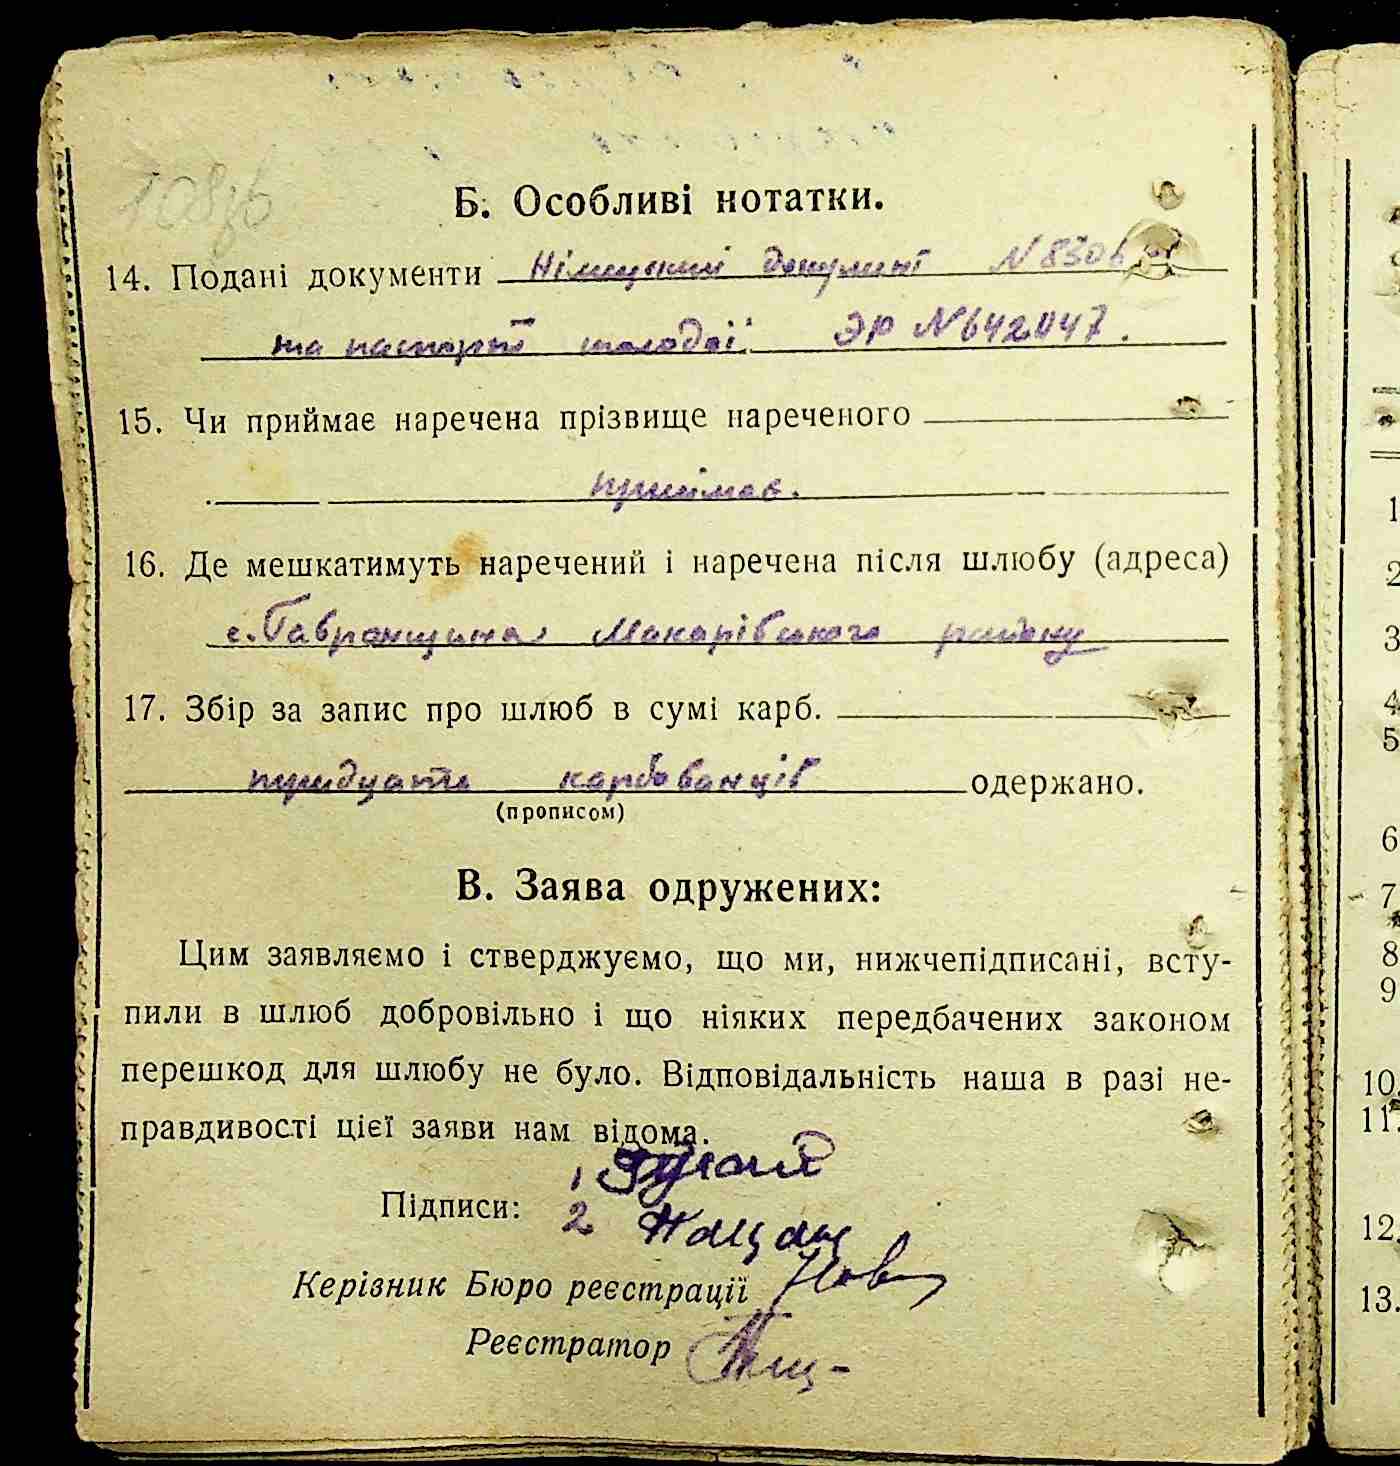 108зв
Б. Особливі нотатки.
14. Подані документи Німецький документ N 8306
та паспорт молодої ЭР N 642047.
15. Чи приймає наречена прізвище нареченого
приймає.
16. Де мешкатимуть наречений і наречена після шлюбу (адреса)
с. Гавронщина Макарівського району
17. Збір за запис про шлюб в сумі карб.
тридцать карбованців одержано.
(прописом)
В. Заява одружених:
Цим заявляємо і стверджуємо, що ми, нижчепідписані, всту-
пили в шлюб добровільно і що ніяких передбачених законом
перешкод для шлюбу не було. Відповідальність наша в разі не-
правдивості цієї заяви нам відома.
1
Підписи: 2
Керівник Бюро реєстрації
Реєстратор
1
2
3
4
5
6
7
8
9
10.
11.
12.
13.